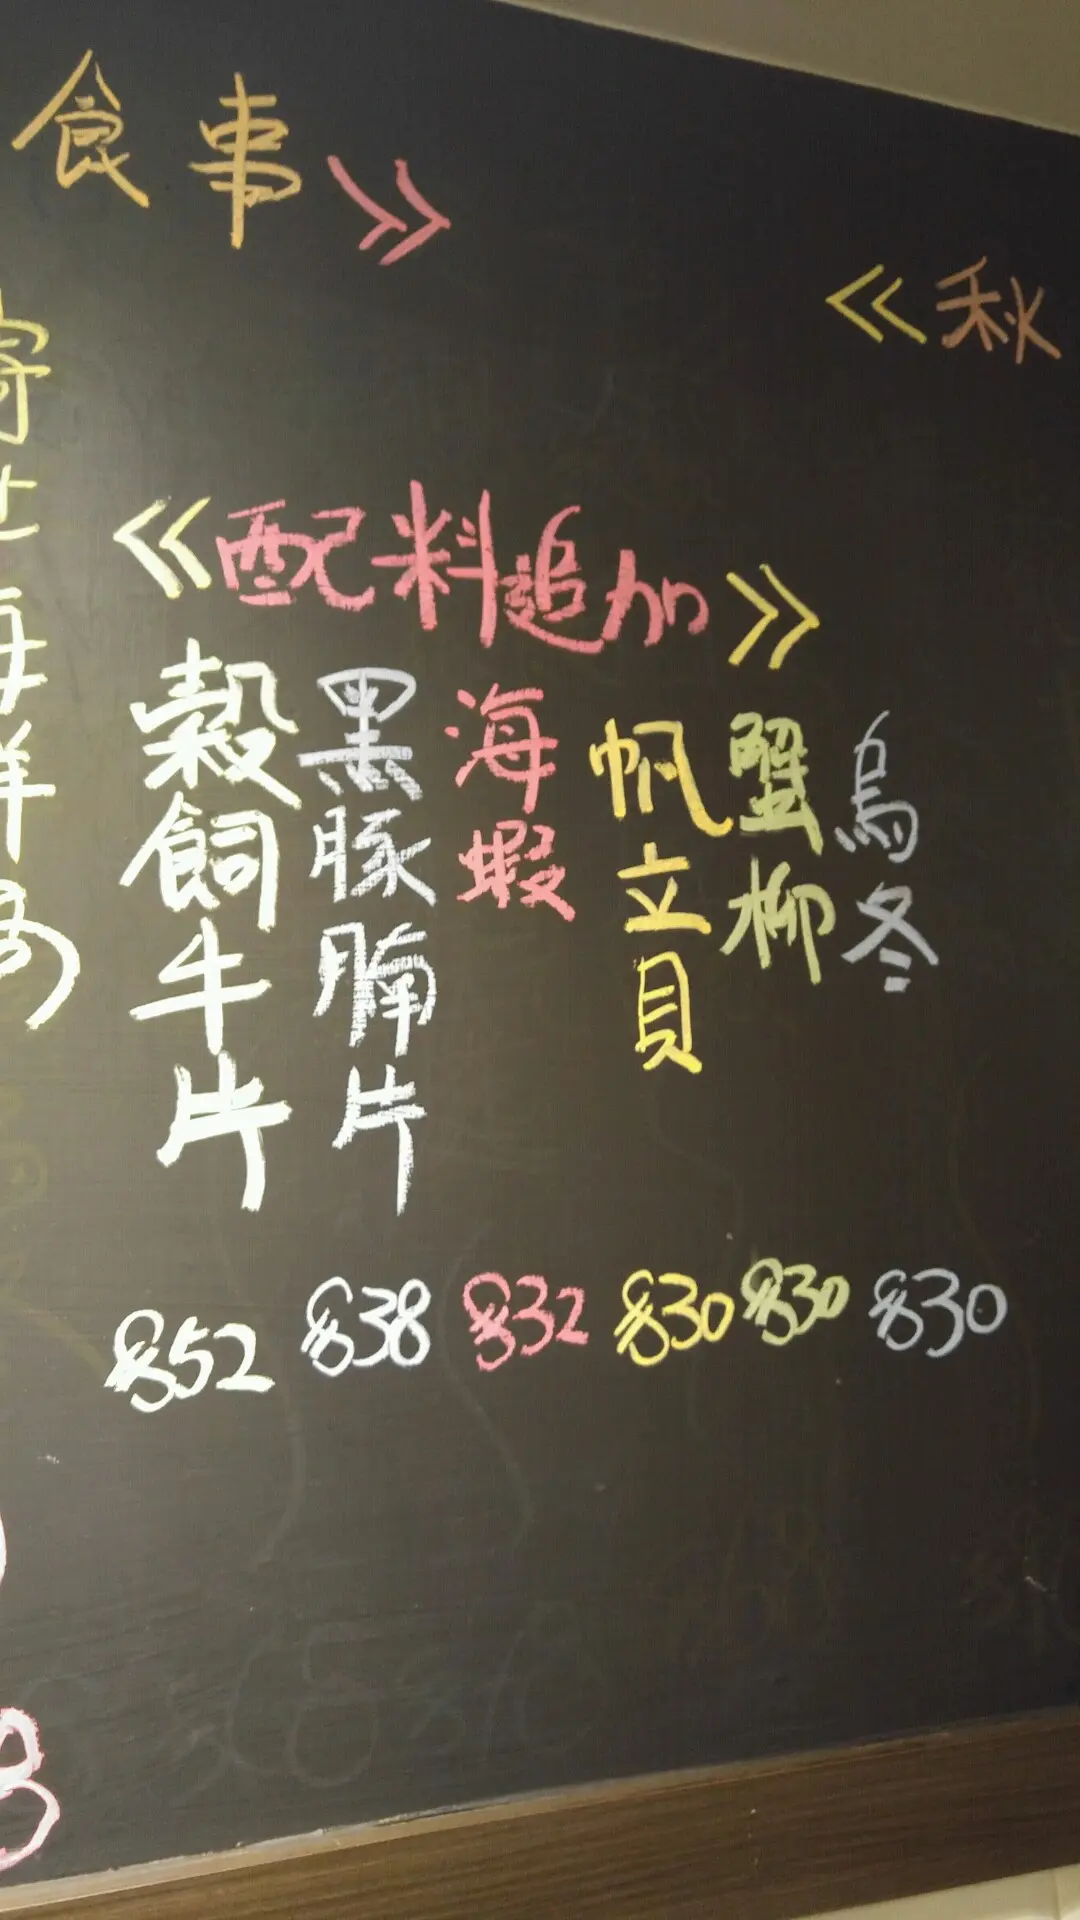 食事》
《秋
寄せ海鮮
《配料追加》
穀飼牛片
黑豚腩片
海蝦
帆立貝
蟹柳
烏冬
$52
$38
$32
$30
$30
$30